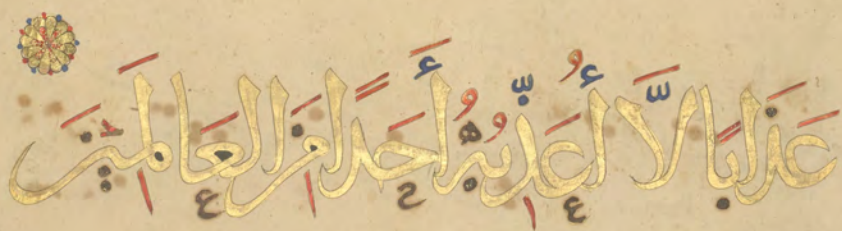 عَذَابًا لَّا أُعَذِّبُهُ أَحَدًا مِّنَ الْعَالَمِينَ